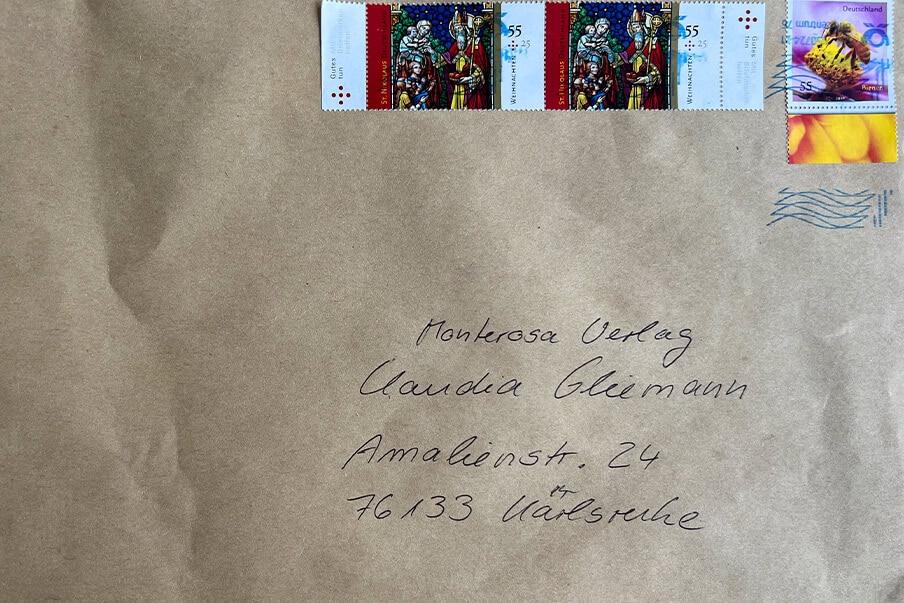 Gutes tun
ST. NIKOLAUS
55
+ 25
WEIHNACHTEN
ST. NIKOLAUS
55
+ 25
WEIHNACHTEN
Gutes tun
Deutschland
55
Monterosa Verlag
Claudia Gliemann
Amalienstr. 24
76133 Karlsruhe